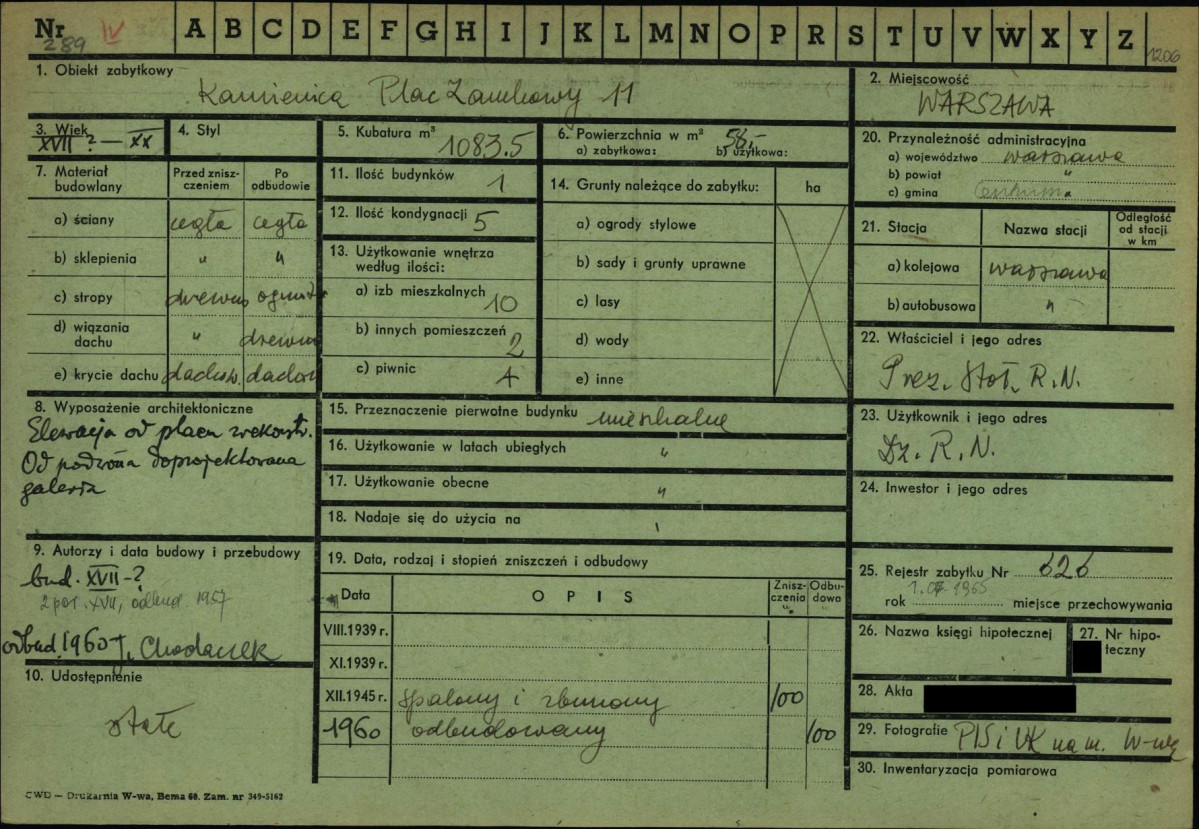 Nr 289 IV A B C D E F G H I J K L M N O P R S T U V W X Y Z 1206
1. Obiekt zabytkowy
Kamienica Plac Zamkowy 11
2. Miejscowość
WARSZAWA
3. Wiek
XVII ? — XX
4. Styl
5. Kubatura m³ 1083.5
6. Powierzchnia w m² 56,-
a) zabytkowa: b) użytkowa:
7. Materiał budowlany
Przed zniszczeniem
Po odbudowie
a) ściany cegła cegła
b) sklepienia " "
c) stropy drewno ogniotr
d) wiązania dachu " drewno
e) krycie dachu dachów. dachów
8. Wyposażenie architektoniczne
Elewacja od placu rekonstr.
Od podwórza doprojektowana
galeria
9. Autorzy i data budowy i przebudowy
bud. XVII - ?
2 poł. XVII, odbud. 1957
odbud. 1960
10. Udostępnienie
stałe
11. Ilość budynków 1
12. Ilość kondygnacji 5
13. Użytkowanie wnętrza według ilości:
a) izb mieszkalnych 10
b) innych pomieszczeń 2
c) piwnic 4
14. Grunty należące do zabytku: ha
a) ogrody stylowe
b) sady i grunty uprawne
c) lasy
d) wody
e) inne
15. Przeznaczenie pierwotne budynku mieszkalne
16. Użytkowanie w latach ubiegłych "
17. Użytkowanie obecne "
18. Nadaje się do użycia na
19. Data, rodzaj i stopień zniszczeń i odbudowy
Data OPIS Zniszczenia % Odbudowa %
VIII.1939 r.
XI.1939 r.
XII.1945 r. spalony i zburzony 100
1960 odbudowany 100
20. Przynależność administracyjna
a) województwo Warszawa
b) powiat "
c) gmina Centrum "
21. Stacja Nazwa stacji Odległość od stacji w km
a) kolejowa Warszawa
b) autobusowa "
22. Właściciel i jego adres
Prez. Stoł. R.N.
23. Użytkownik i jego adres
Dz. R.N.
24. Inwestor i jego adres
25. Rejestr zabytku Nr 626
rok 1.07.1965 miejsce przechowywania
26. Nazwa księgi hipotecznej
27. Nr hipoteczny
28. Akta
29. Fotografie
30. Inwentaryzacja pomiarowa
CWD — Drukarnia W-wa, Bema 60. Zam. nr 349-5162